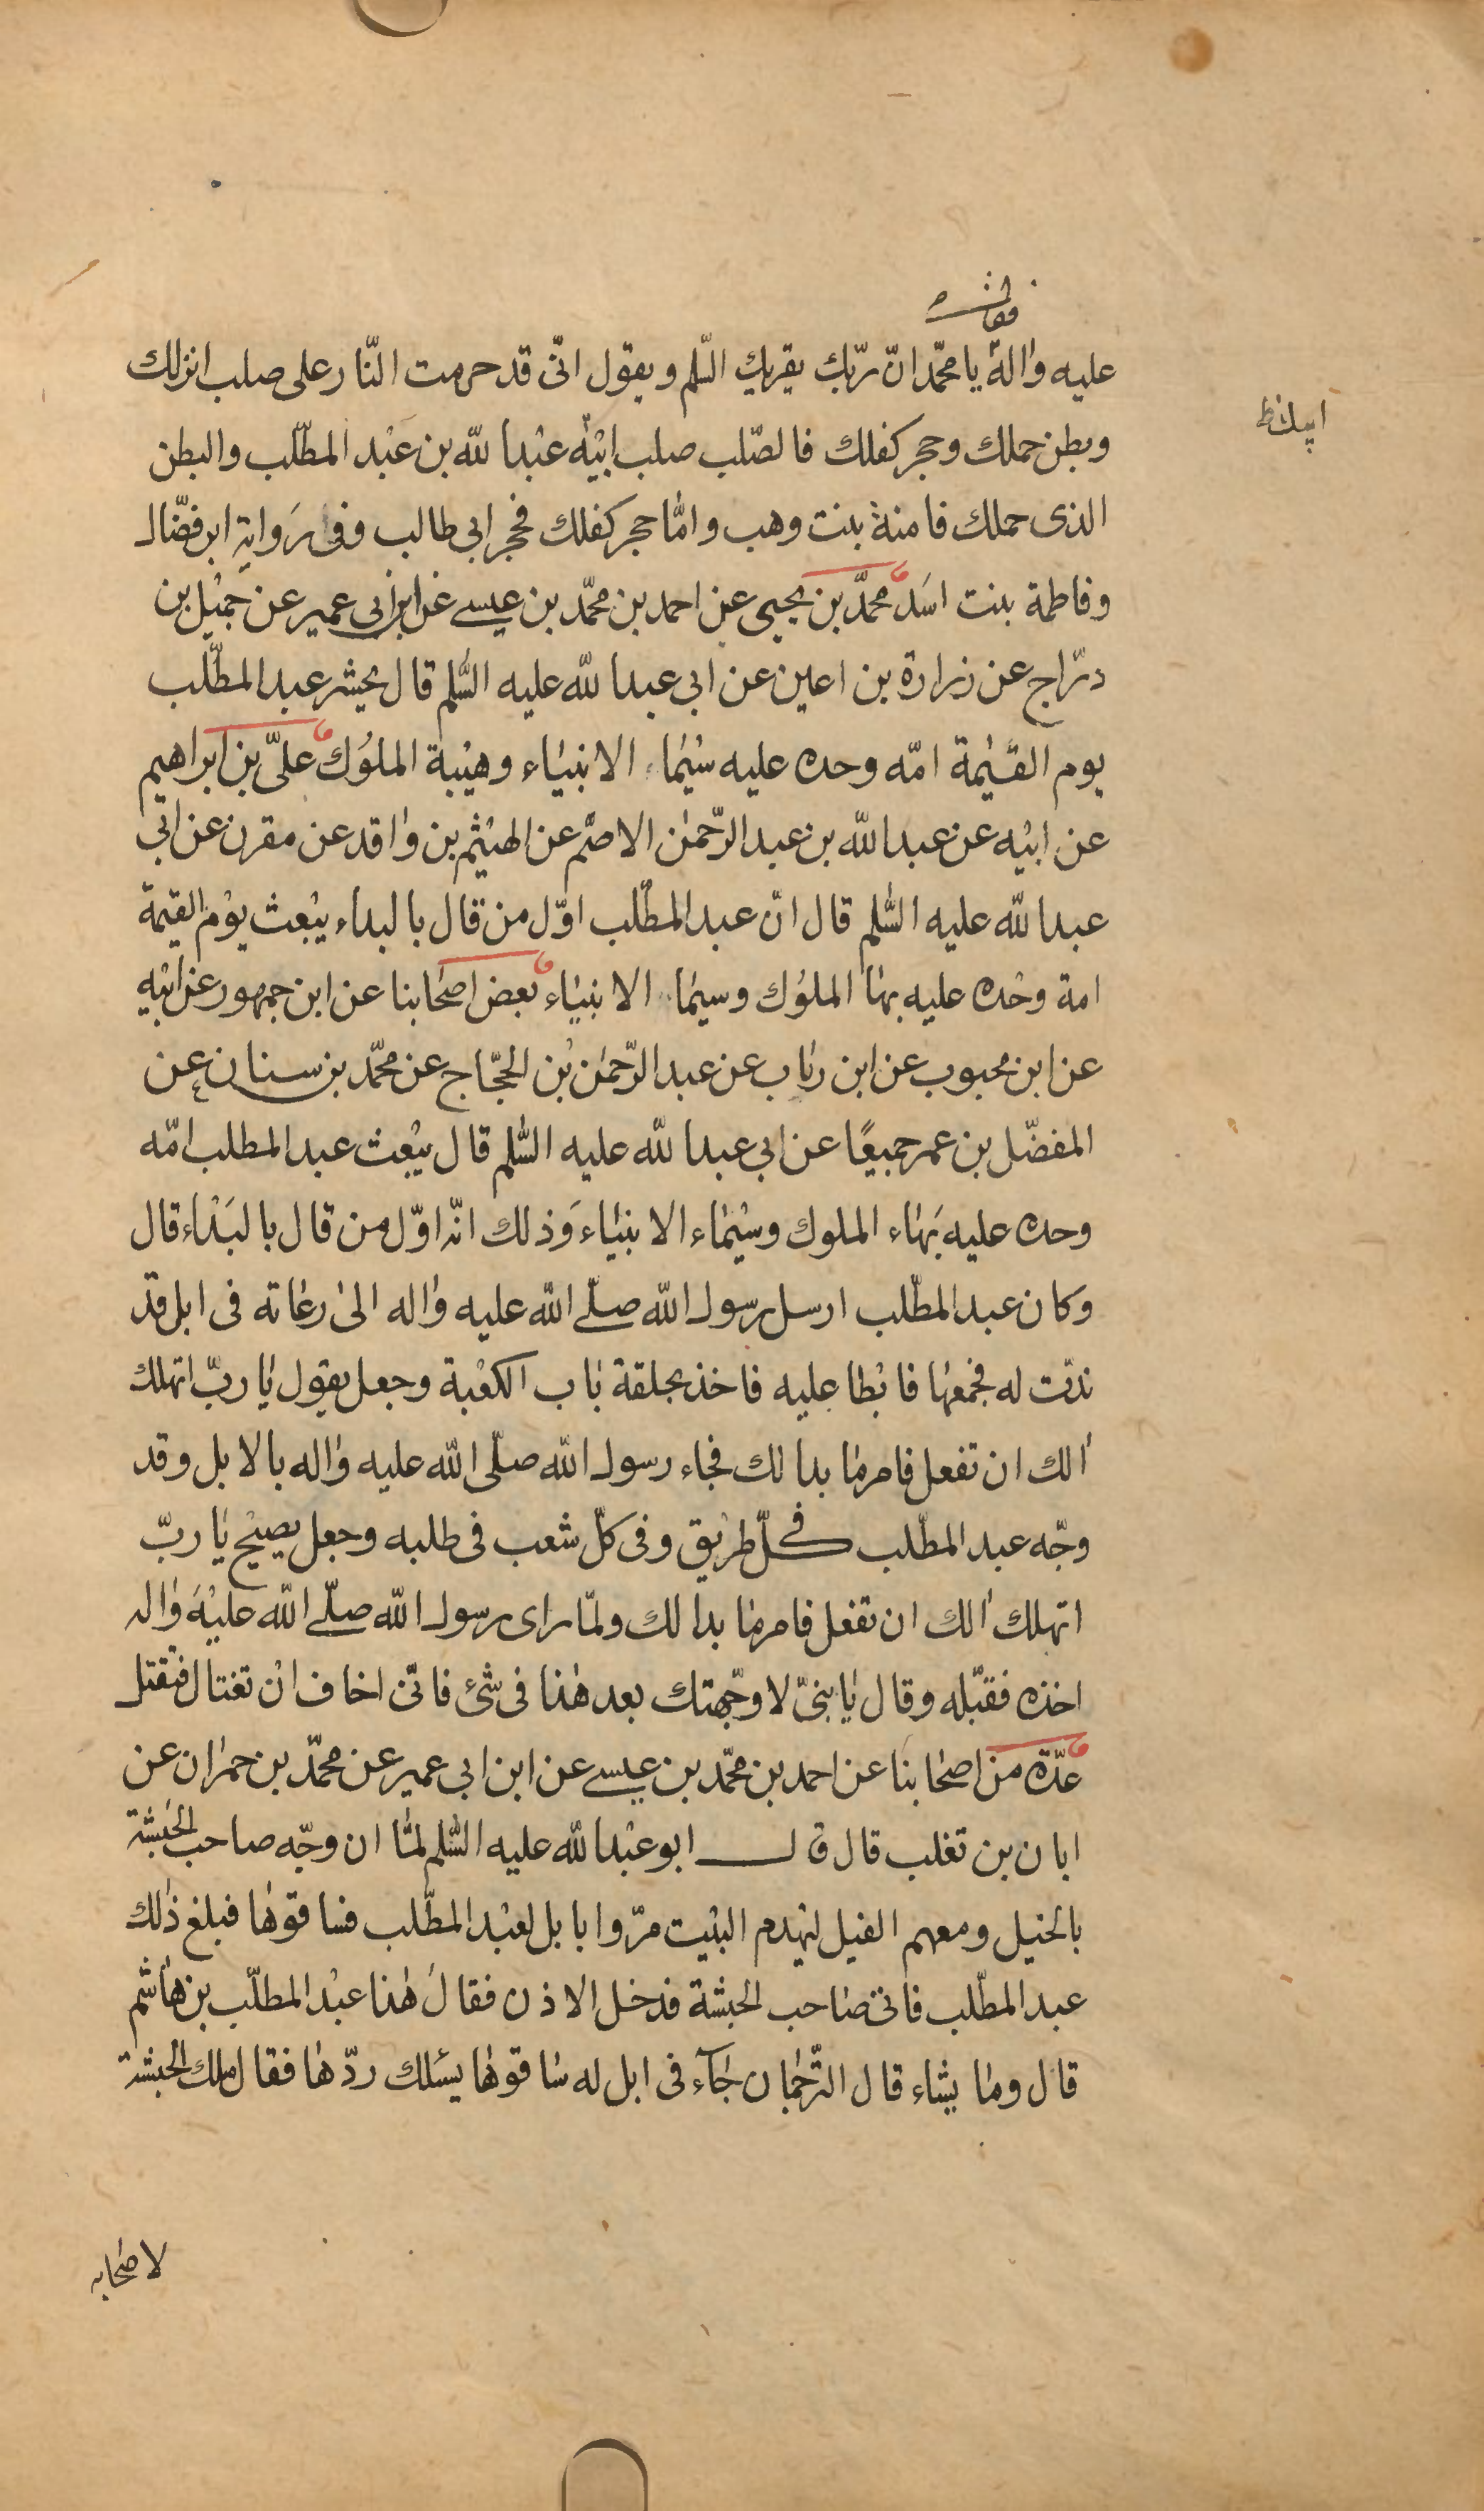 فقال
عليه واله يا محمّد انّ ربّك يقريك السّلم ويقول انّى قد حرمت النّار على صلب انزلك
وبطن حملك وحجر كفلك فالصّلب صلب ابيه عبد الله بن عبد المطّلب والبطن
الذى حملك فامنة بنت وهب وامّا حجر كفلك فحجر ابى طالب وفى رواية ابن فضّال
وفاطمة بنت اسد محمّد بن يحيى عن احمد بن محمّد بن عيسى عن ابن ابى عمير عن جميل بن
درّاج عن زرارة بن اعين عن ابى عبد الله عليه السّلم قال يحشر عبد المطّلب
يوم القيٰمة امّه وحده عليه سيماء الانبياء وهيبة الملوك علىّ بن ابراهيم
عن ابيه عن عبد الله بن عبد الرّحمٰن الاصّم عن الهيثم بن واقد عن مقرن عن ابى
عبد الله عليه السّلم قال انّ عبد المطّلب اوّل من قال بالبداء يبعث يوم القيمة
امة وحده عليه بهاء الملوك وسيماء الانبياء بعض اصحابنا عن ابن جمهور عن ابيه
عن ابن محبوب عن ابن رئاب عن عبد الرّحمٰن بن الحجّاج عن محمّد بن سنان عن
المفضّل بن عمر جميعًا عن ابى عبد الله عليه السّلم قال يبعث عبد المطلب امّه
وحده عليه بهاء الملوك وسيماء الانبياء وذلك انّه اوّل من قال بالبداء قال
وكان عبد المطّلب ارسل رسول الله صلّى الله عليه واله الى رعاته فى ابل قد
ندّت له فجمعها فابطا عليه فاخذ بحلقة باب الكعبة وجعل يقول يا ربّ اتهلك
الك ان تفعل فامر ما بدا لك فجاء رسول الله صلّى الله عليه واله بالابل وقد
وجّه عبد المطّلب فى كلّ طريق وفى كلّ شعب فى طلبه وجعل يصيح يا ربّ
اتهلك الك ان تفعل فامر ما بدا لك ولمّا راى رسول الله صلّى الله عليه واله
اخذه فقبّله وقال يا بنىّ لا وجّهتك بعد هذا فى شئ فانّى اخاف ان تغتال فتقتل
عدّة من اصحابنا عن احمد بن محمّد بن عيسى عن ابن ابى عمير عن محمّد بن حمران عن
ابان بن تغلب قال قال ابو عبد الله عليه السّلم لمّا ان وجّه صاحب الحبشة
بالخيل ومعهم الفيل ليهدم البيت مرّوا بابل لعبد المطّلب فساقوها فبلغ ذلك
عبد المطّلب فاتى صاحب الحبشة فدخل الاذن فقال هذا عبد المطلّب بن هاشم
قال وما يشاء قال التّرجمان جاء فى ابل له ساقوها يسئلك ردّها فقال ملك الحبشة
لاصحابه